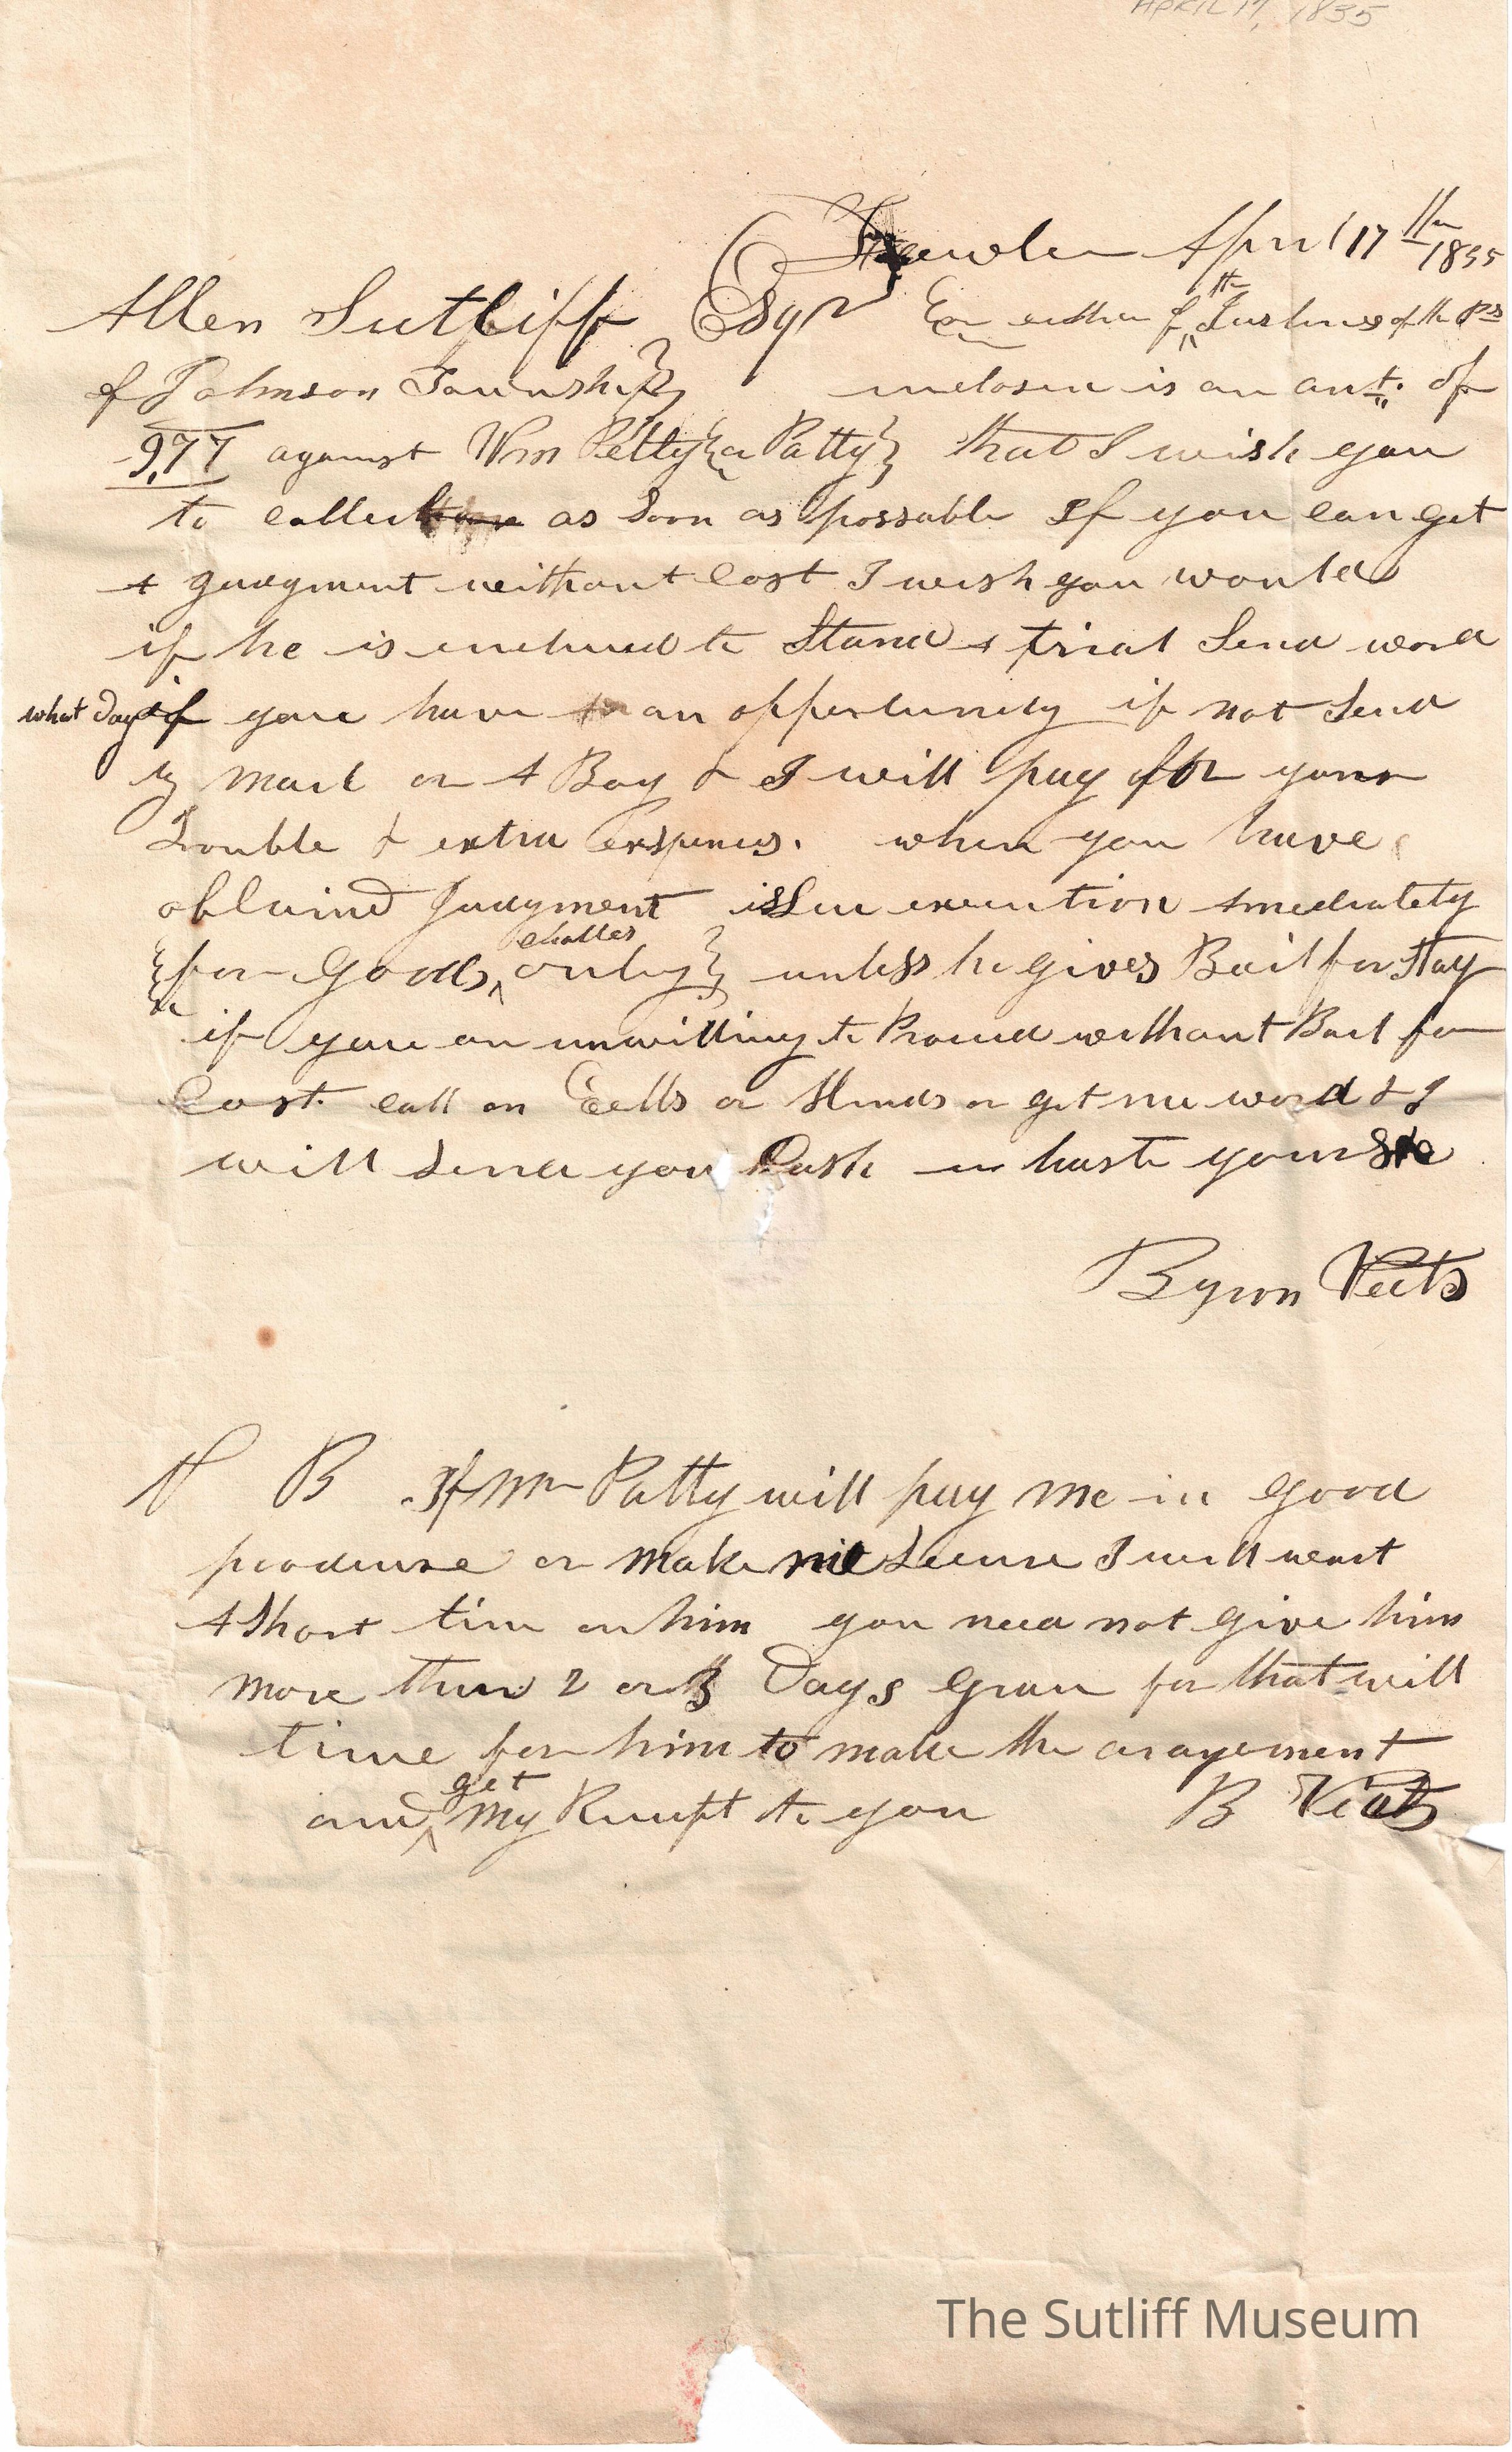 APRIL 17, 1835
April 17th 1835
Allen Sutliff Esqr Or either of the Justices of the Ps
of Johnson Township inclosed is an act. of
9,77 against Wm Petty {or Patty} that I wish you
to collect as soon as possable If you can get
A Judgment without Cost I wish you would
if he is enclined to Stand A trial Send word
what day if you have an oppertunity if not Send
by Mail or A Boy & I will pay for your
Trouble & extra Expenses. when you have
obtained Judgment issue execution Imediately
{for Goods, chattles only} unless he gives Bail for Stay
if you are unwilling to Proceed without Bail for
Cost call on Eells or Hinds or get me word & I
will Send you Cash in haste yours
Byron Viets
N B If Wm Patty will pay me in good
produce or make me Secure I will wait
A Short time on him you need not give him
more than 2 or 3 Days Grace for that will
time for him to make the arayement
and get My Receipt to you B Viets
The Sutliff Museum